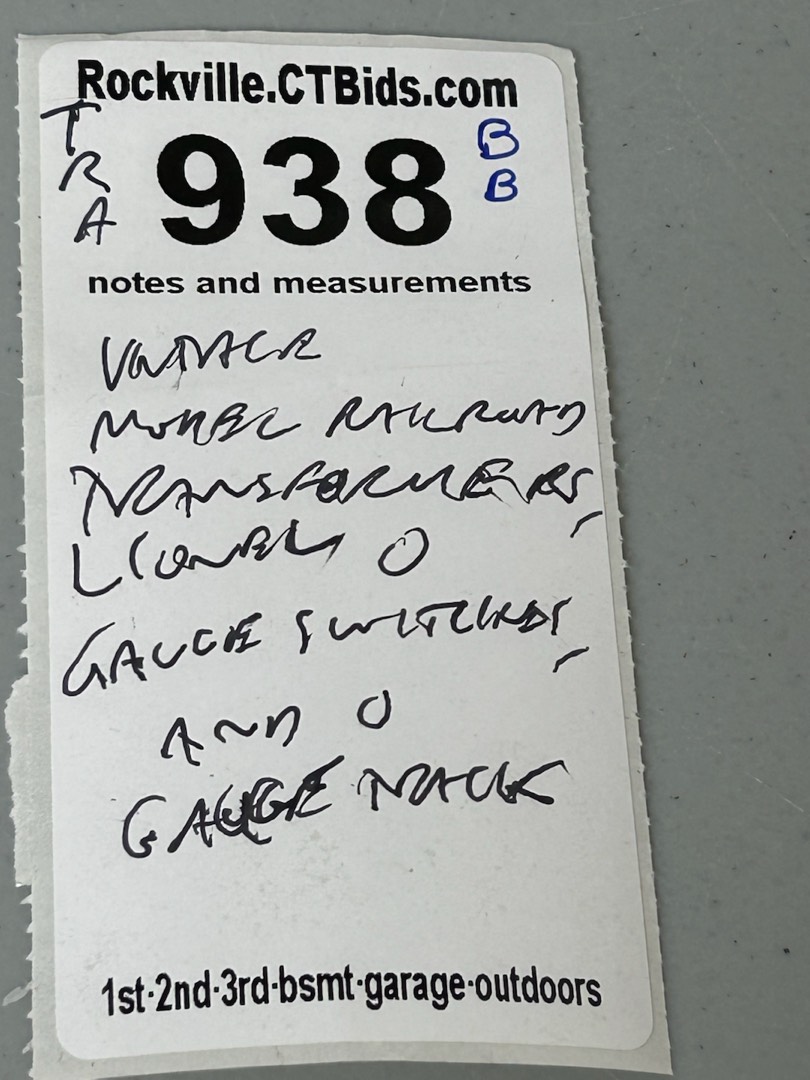 Rockville.CTBids.com
TRA
938
BB
notes and measurements
VINTAGE
MODEL RAILROAD
TRANSFORMERS,
LIONEL O
GAUGE SWITCHES,
AND O
GAUGE TRACK
1st·2nd·3rd·bsmt·garage·outdoors